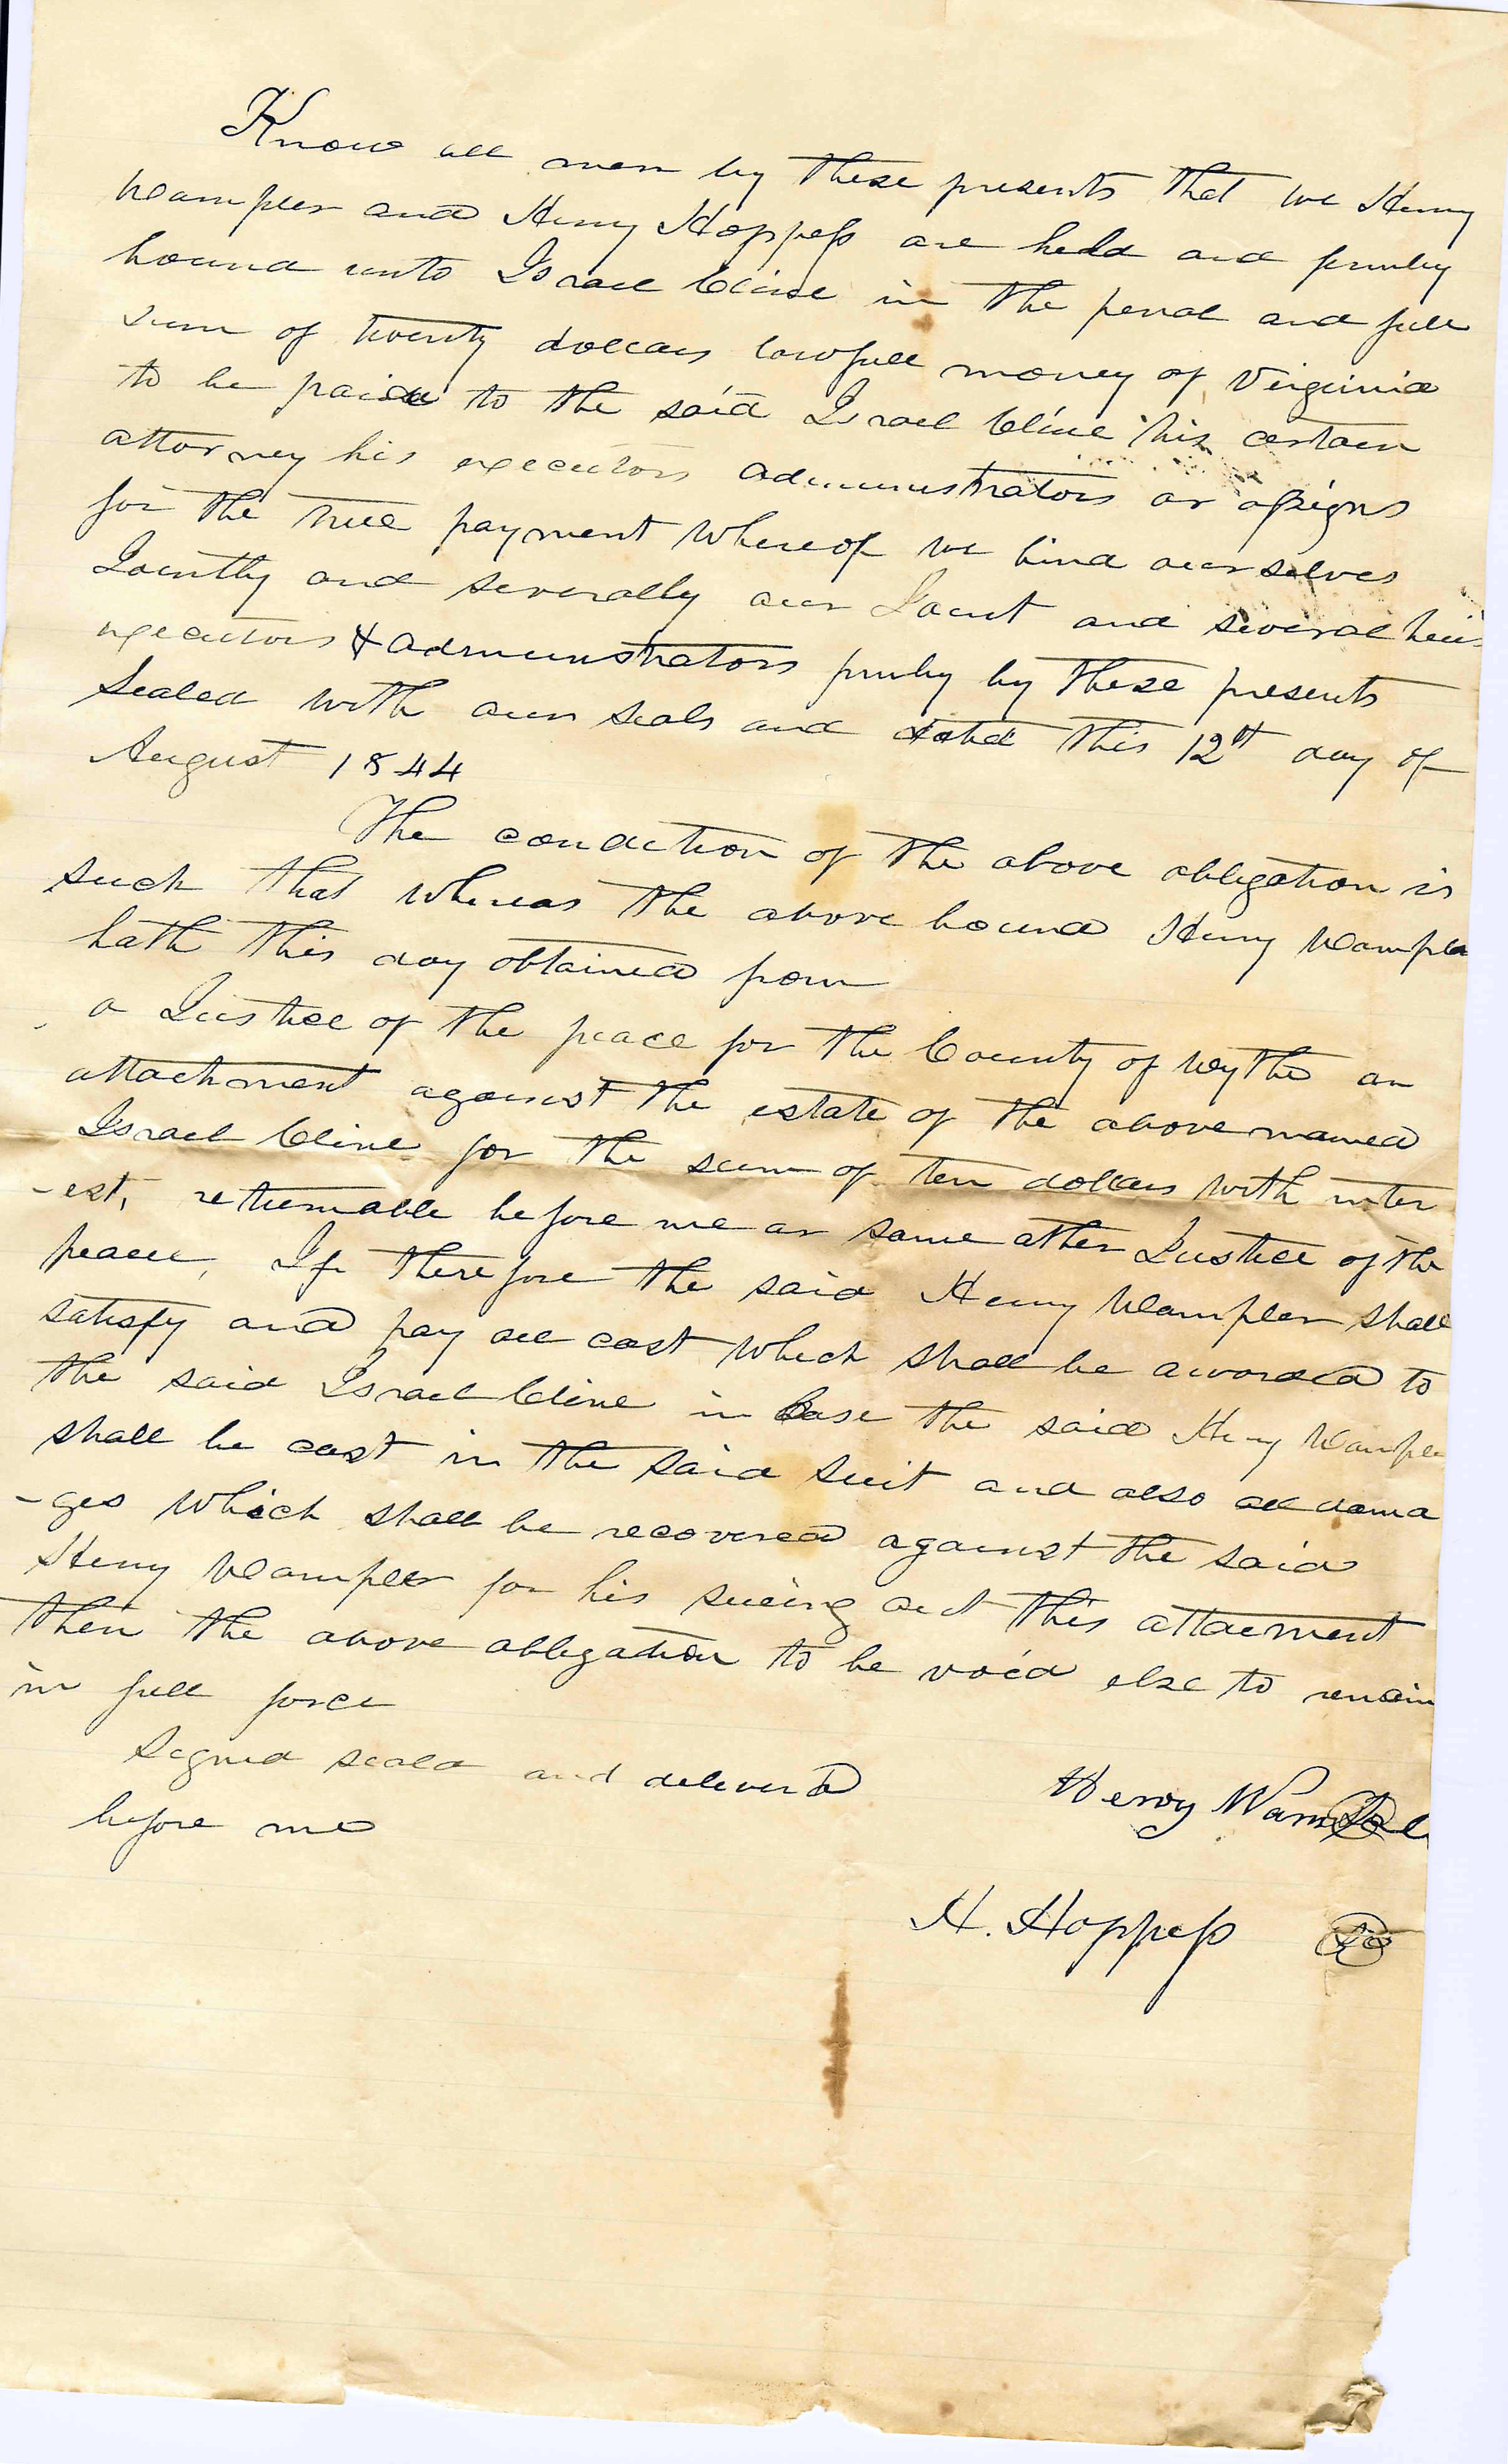 Know all men by these presents that we Henry
Wampler and Henry Hoppess are held and firmly
bound unto Israel Cline in the penal and full
sum of twenty dollars lawfull money of Virginia
to be paid to the said Israel Cline his certain
attorney his executors administrators or assigns
for the true payment whereof we bind ourselves
Jointly and severally our Joint and several heirs
executors & administrators firmly by these presents
Sealed with our seals and dated this 12th day of
August 1844
The condition of the above obligation is
such that whereas the above bound Henry Wampler
hath this day obtained from
a Justice of the peace for the County of Wythe an
attachment against the estate of the above named
Israel Cline for the sum of ten dollars with inter
-est, returnable before me or some other Justice of the
peace, If therefore the said Henry Wampler shall
satisfy and pay all cost which shall be awarded to
the said Israel Cline in Case the said Henry Wampler
shall be cast in the said suit and also all dama
-ges which shall be recovered against the said
Henry Wampler for his sueing out this attacment
then the above obligation to be void else to remain
in full force
Signed seald and deliverd
before me
Henry Wample
H. Hoppess